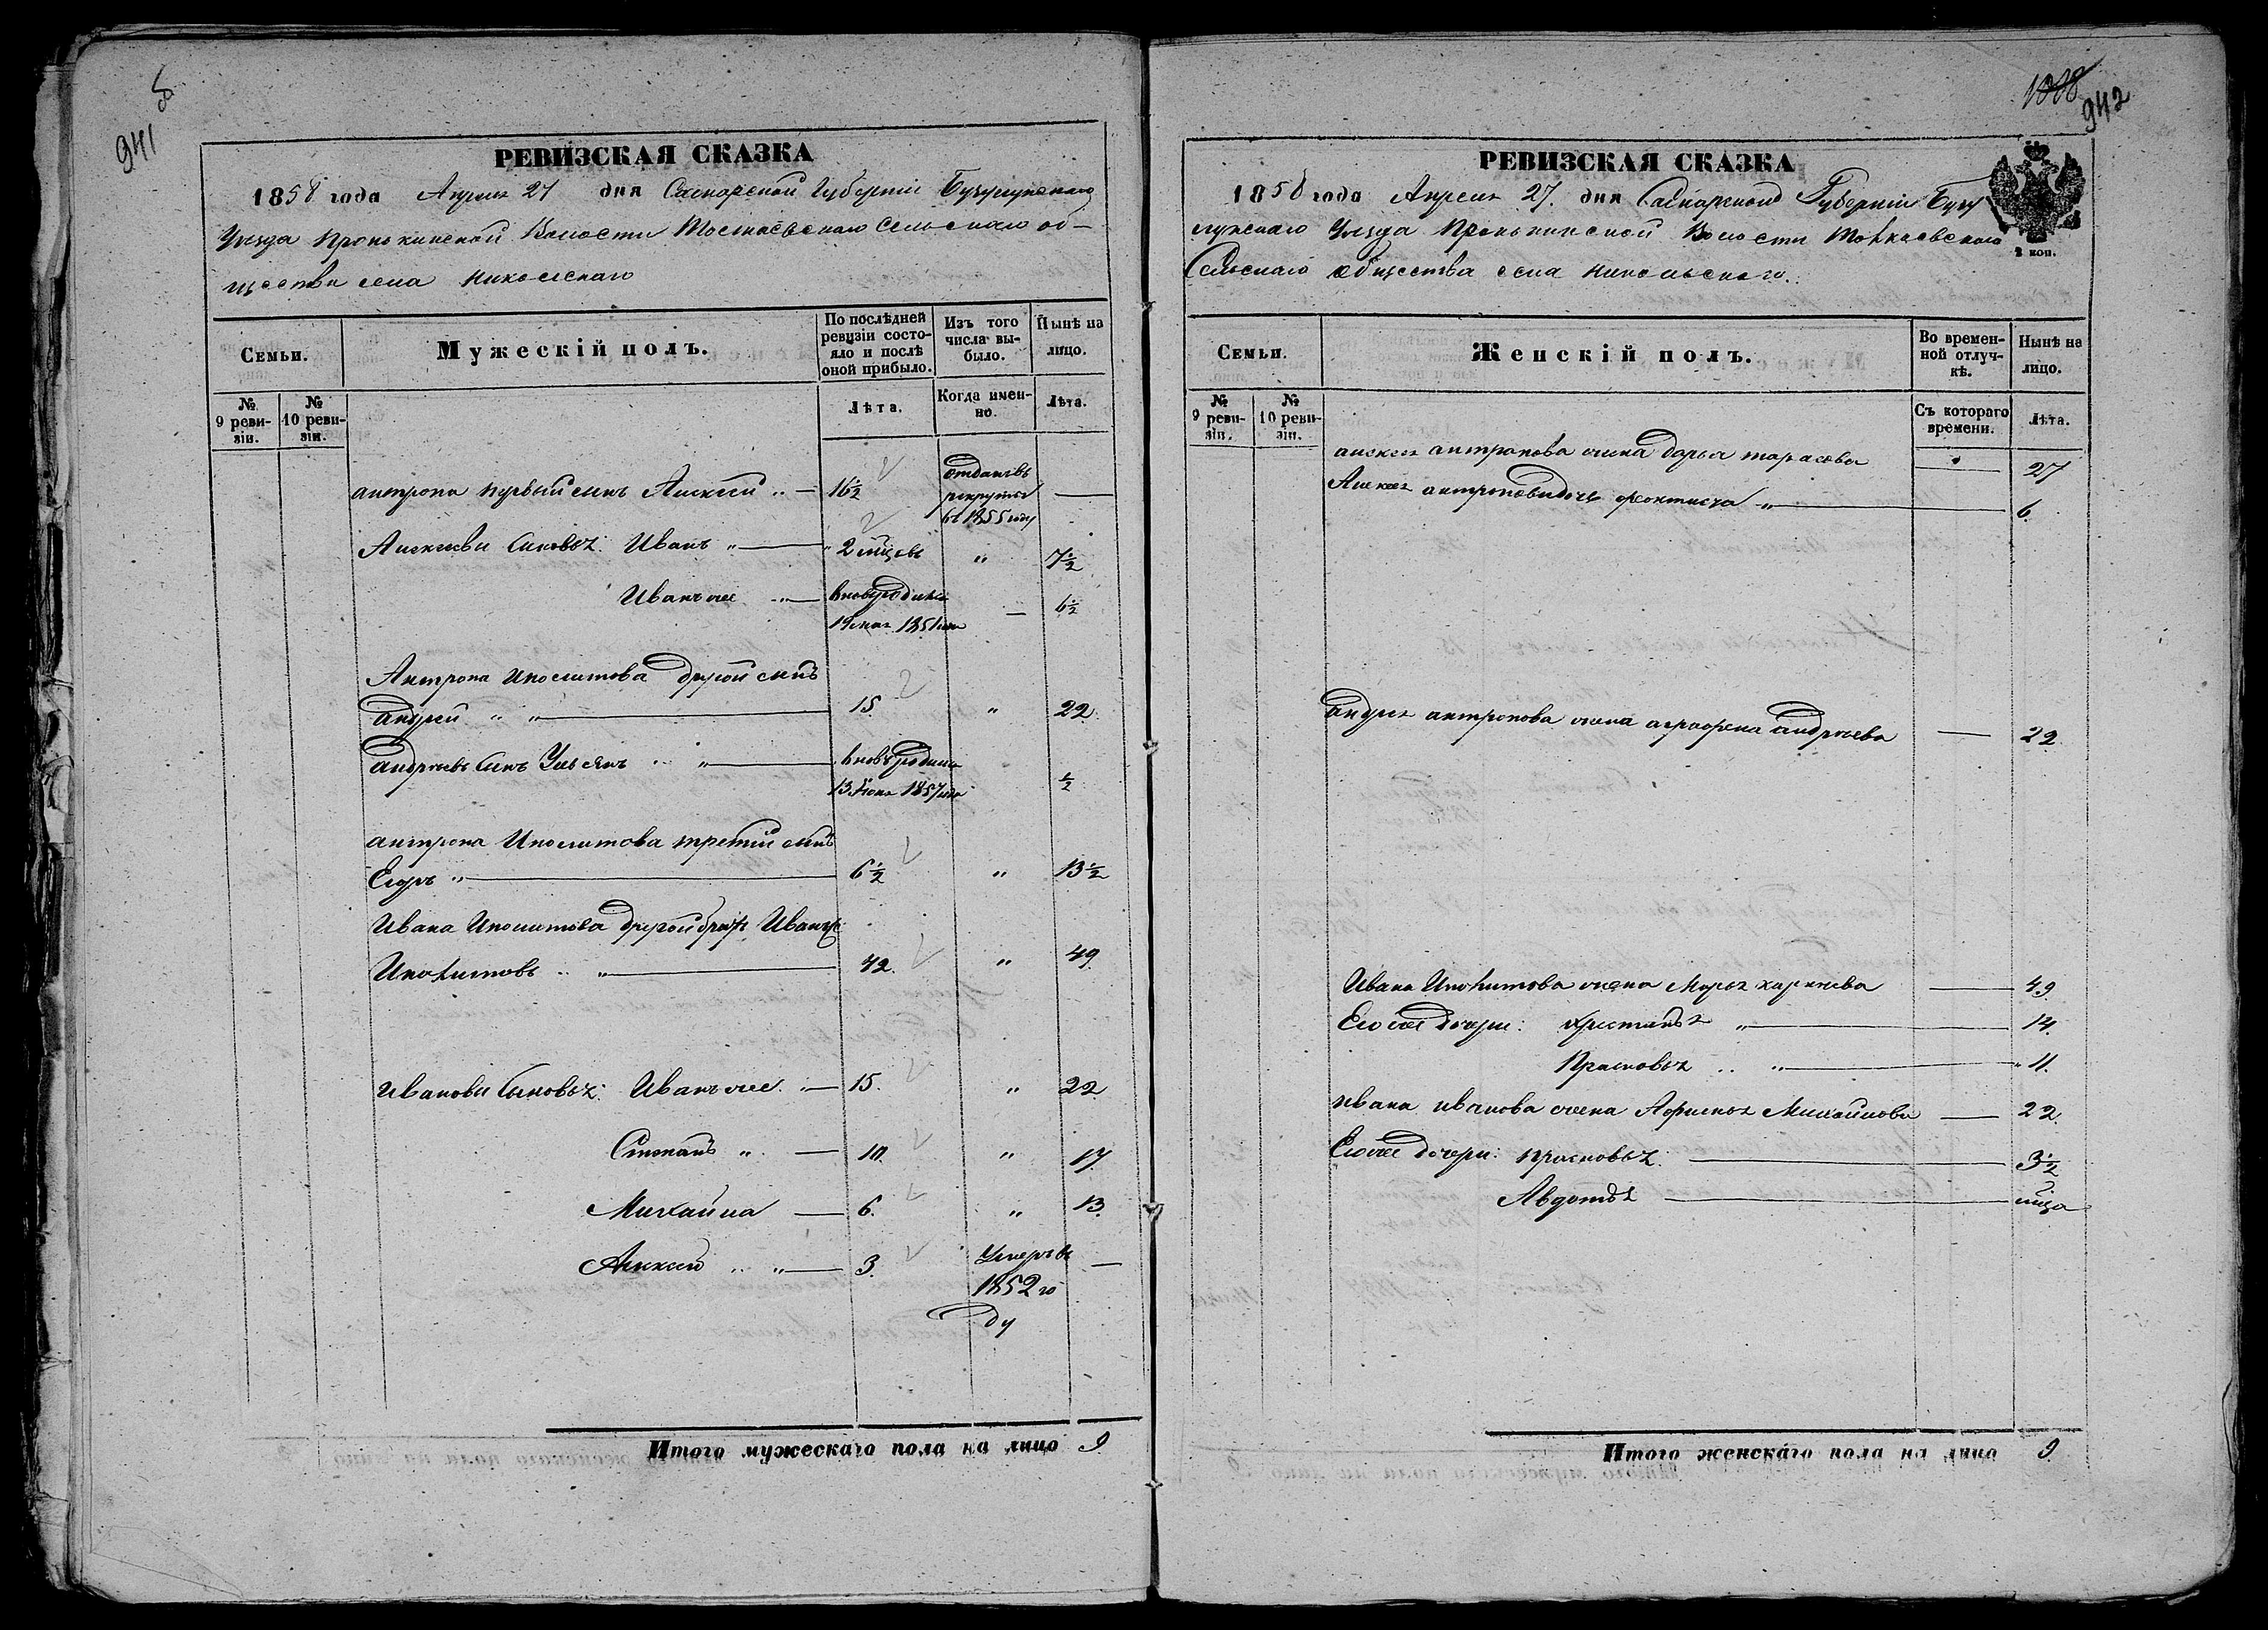 941 об
РЕВИЗСКАЯ СКАЗКА
1858 года Апреля 27 дня Самарской Губернии Бузулукскаго
Уезда Пронькинской Волости Толкаевскаго Сельскаго об-
щества села Никольскаго
Семьи.
Мужескій полъ.
По послѣдней ревизіи состояло и послѣ оной прибыло.
Изъ того числа выбыло.
Нынѣ на лицо.
№ 9 ревизіи.
№ 10 ревизіи.
Лѣта.
Когда именно.
Лѣта.
антропа первый сынъ Алексей .. — 16½ отданъ въ рекруты въ 1855 году —
Алексеевы Сыновья: Иванъ „ — 2 мцовъ „ 7½
Иванъ же „ — вновь родился 19 мая 1851 года — 6½
Антропа Иполитова другой сынъ
андрей „ „ — 15. „ 22.
андреевъ Сынъ Ульянъ „ — вновь родился 13 Июня 1857 года ½
антропа Иполитова третий сынъ
Егоръ „ — 6½ „ 13½
Ивана Иполитова другой братъ Иванъ же
Иполитовъ .. „ — 42. „ 49.
ивановы сыновья: Иванъ же .. — 15. „ 22
Степанъ „ — 10. „ 17.
Михайла — 6. „ 13.
Алексей .. „ — 3. Умеръ въ 1852 го ду —
Итого мужескаго пола на лицо 9.
1008
942
РЕВИЗСКАЯ СКАЗКА
1858 года Апреля 27. дня Самарской Губернии Бузу
лукскаго Уезда Пронькинской Волости Толкаевскаго
Сельскаго общества села Никольскаго.
2 коп.
Семьи.
Женскій полъ.
Во временной отлучкѣ.
Нынѣ на лицо.
№ 9 ревизіи.
№ 10 ревизіи.
Съ котораго времени.
Лѣта.
алексея антропова жена дарья тарасова — 27
Алексея антропова дочь феоктиста „ — 6.
андрея антропова жена аграфена андреева — 22.
Ивана Иполитова жена Марья — 49
Его же дочери: — 14.
Прасковья .. „ — 11.
ивана иванова жена Афимья Михайлова — 22.
Его же дочери: прасковья. — 3½
Авдотья — мца
Итого женскаго пола на лицо 9.